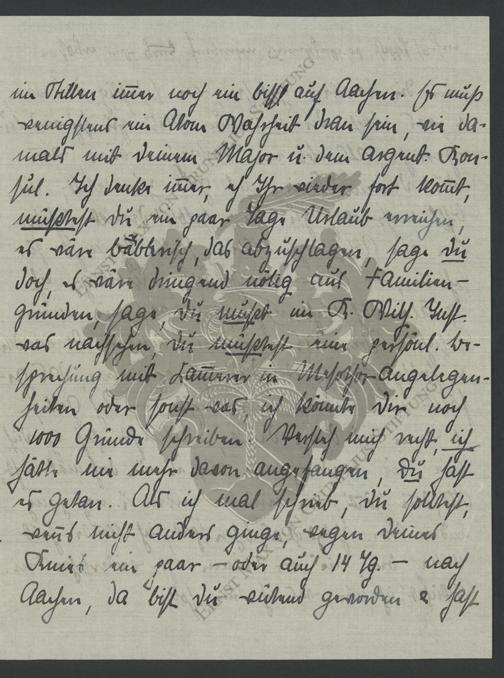 im Stillen im̅er noch ein bißl auf Aachen. Es muß
wenigstens ein Atom Wahrheit dran sein, wie da-
mals mit deinem Major u. dem argent. Kon-
sul. Ich denke im̅er, eh Ihr wieder fort kom̅t,
müßtest du ein paar Tage Urlaub erreichen,
es wäre barbarisch, das abzuschlagen, sage du
doch, es wäre dringend nötig aus Familien-
gründen, sage, du mußt im K. Wilh. Inst.
was nachsehen, du müßtest eine persönl. Be-
sprechung mit Lam̅erer in Angelegen-
heiten oder sonst was, ich könnte dir noch
1000 Gründe schreiben. Versteh mich recht, ich
hätte nie mehr davon angefangen, du hast
es getan. Als ich mal schrieb, du solltest,
wenns nicht anders ginge, wegen deines
Knies ein paar – oder auch 14 Tg. – nach
Aachen, da bist du wütend geworden u. hast